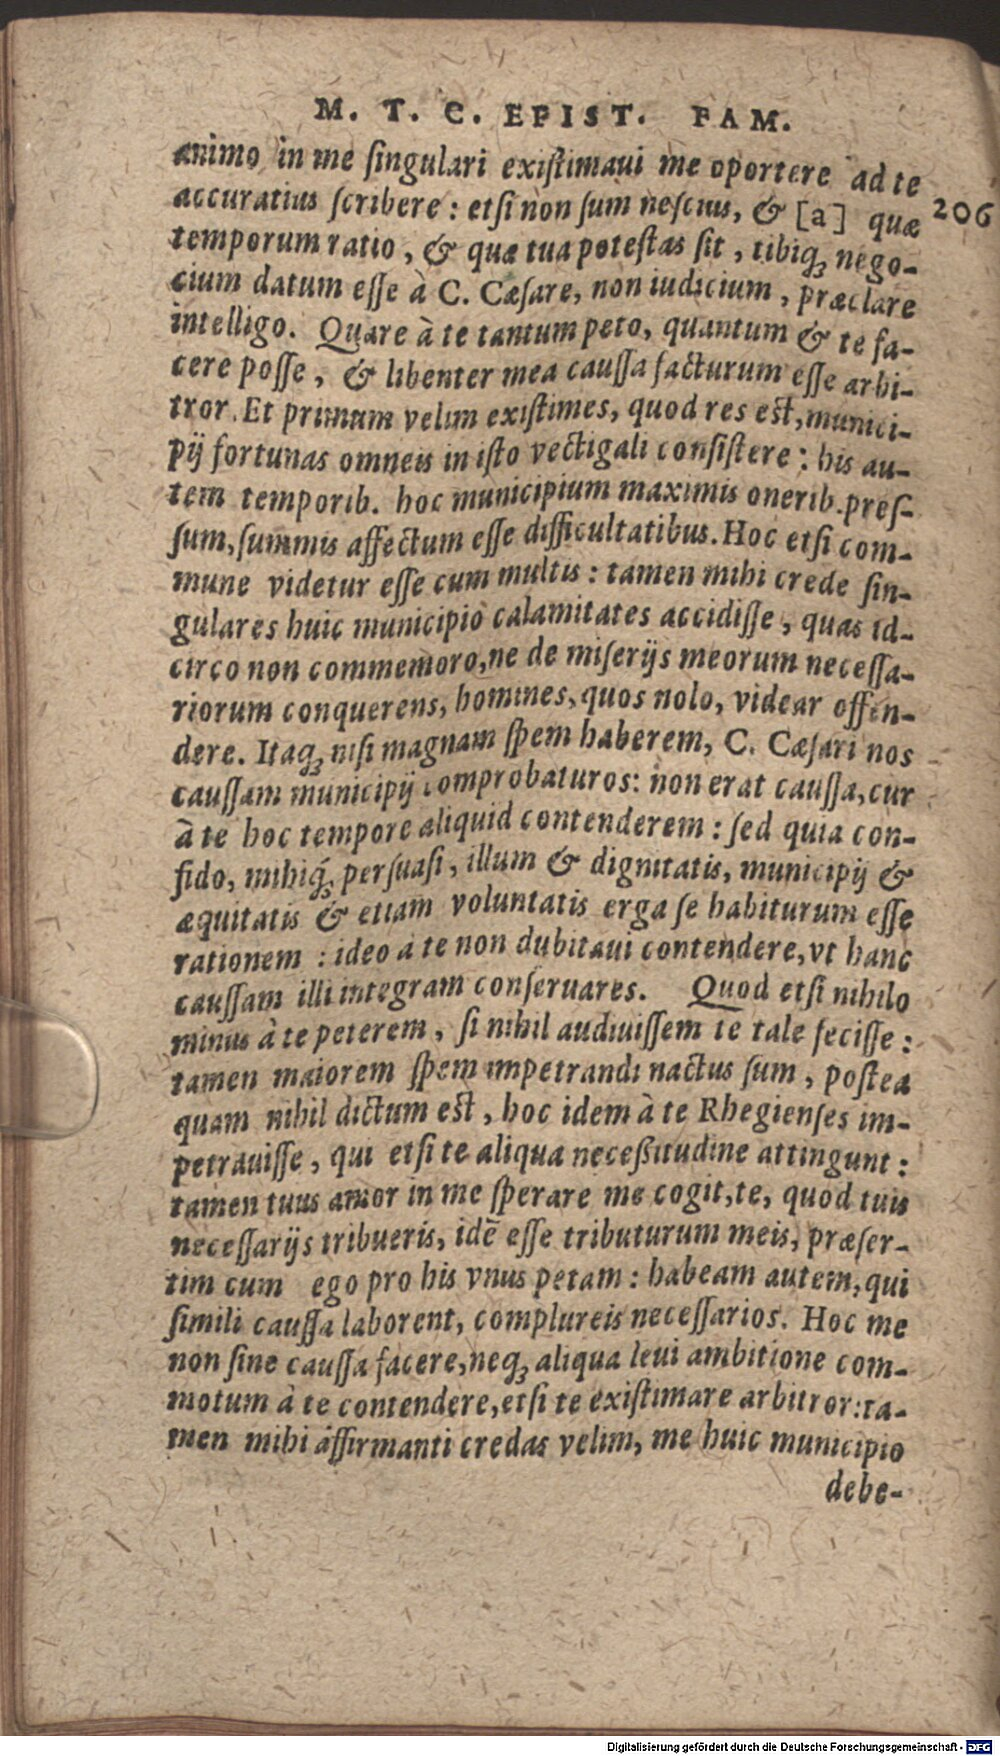 M. T. C. EPIST. FAM.
animo in me ſingulari exiſtimaui me oportere ad te
accuratius ſcribere: etſi non ſum neſcius, & [a] quæ
206
temporum ratio, & quæ tua poteſtas ſit, tibiq́ꝫ nego-
cium datum eſſe à C. Cæſare, non iudicium, præclare
intelligo. Quare à te tantum peto, quantum & te fa-
cere poſſe, & libenter mea cauſſa facturum eſſe arbi-
tror. Et primum velim exiſtimes, quod res eſt, munici-
pij fortunas omneis in iſto vectigali conſiſtere: his au-
tem temporib. hoc municipium maximis onerib. preſ-
ſum, ſummis affectum eſſe difficultatibus. Hoc etſi com-
mune videtur eſſe cum multis: tamen mihi crede ſin-
gulares huic municipio calamitates accidiſſe, quas id-
circo non commemoro, ne de miſerijs meorum neceſſa-
riorum conquerens, homines, quos nolo, videar offen-
dere. Itaqꝫ niſi magnam ſpem haberem, C. Cæſari nos
cauſſam municipij comprobaturos: non erat cauſſa, cur
à te hoc tempore aliquid contenderem: ſed quia con-
fido, mihiq́ꝫ perſuaſi, illum & dignitatis, municipij &
æquitatis & etiam voluntatis erga ſe habiturum eſſe
rationem: ideo à te non dubitaui contendere, vt hanc
cauſſam illi integram conſeruares. Quod etſi nihilo
minus à te peterem, ſi nihil audiuiſſem te tale feciſſe:
tamen maiorem ſpem impetrandi nactus ſum, poſtea
quam nihil dictum eſt, hoc idem à te Rhegienſes im-
petrauiſſe, qui etſi te aliqua neceßitudine attingunt:
tamen tuus amor in me ſperare me cogit, te, quod tuis
neceſſarijs tribueris, idē eſſe tributurum meis, præſer-
tim cum ego pro his vnus petam: habeam autem, qui
ſimili cauſſa laborent, complureis neceſſarios. Hoc me
non ſine cauſſa facere, neqꝫ aliqua leui ambitione com-
motum à te contendere, etſi te exiſtimare arbitror: ta-
men mihi affirmanti credas velim, me huic municipio
debe-
Digitalisierung gefördert durch die Deutsche Forschungsgemeinschaft - DFG